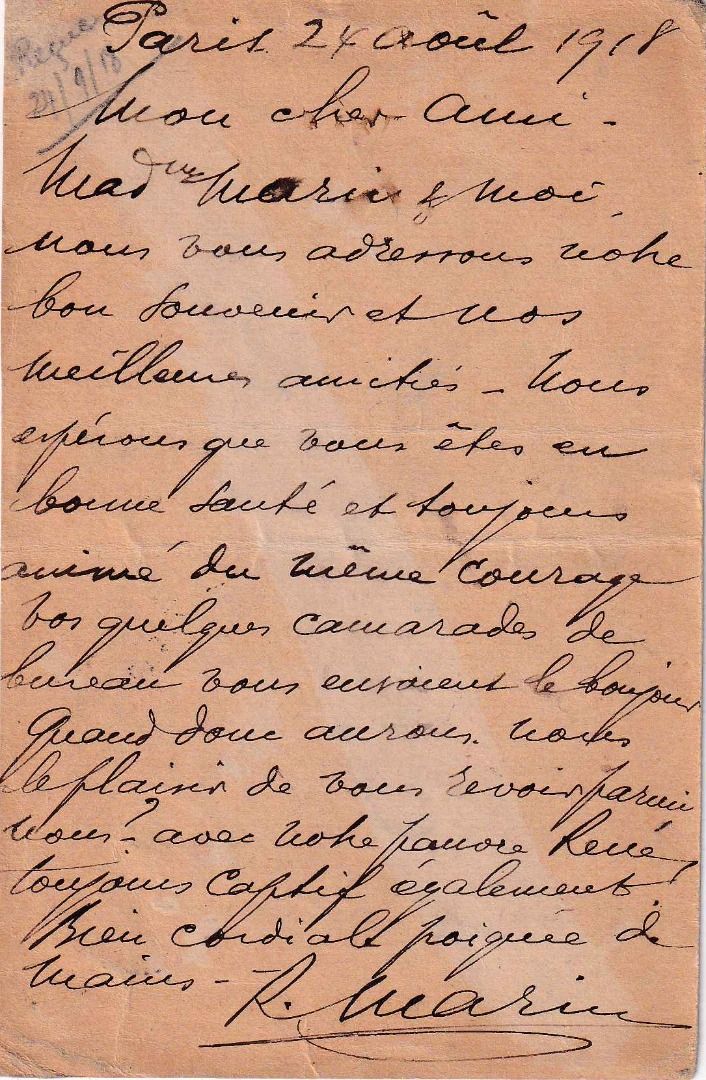 Reçue
24/9/18
Paris 24 août 1918
Mon cher Ami -
Madme Marin & moi
nous vous adressons notre
bon souvenir et nos
meilleures amitiés - Nous
espérons que vous êtes en
bonne santé et toujours
animé du même courage
Vos quelques camarades de
bureau vous envoient le bonjour
Quand donc aurons-nous
le plaisir de vous revoir parmi
nous? avec notre pauvre René,
toujours captif également.
Bien cordiale poignée de
mains -
R. Marin